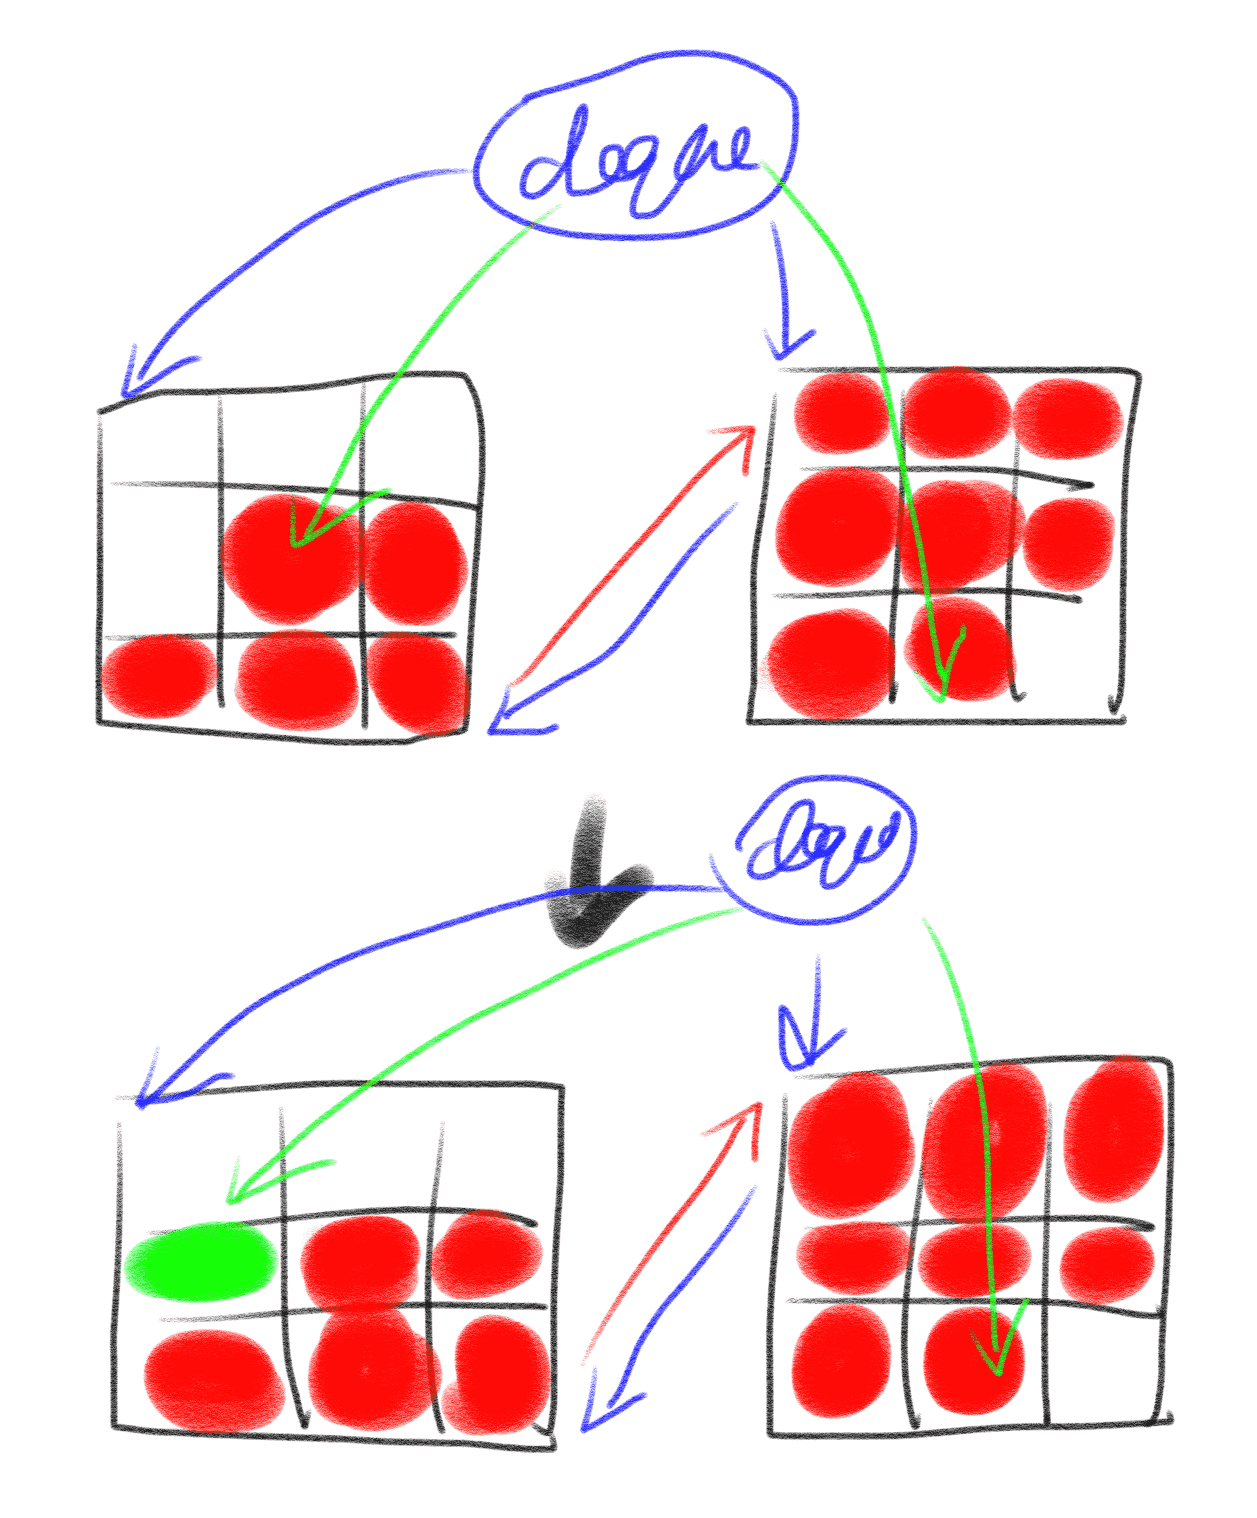 deque
deque